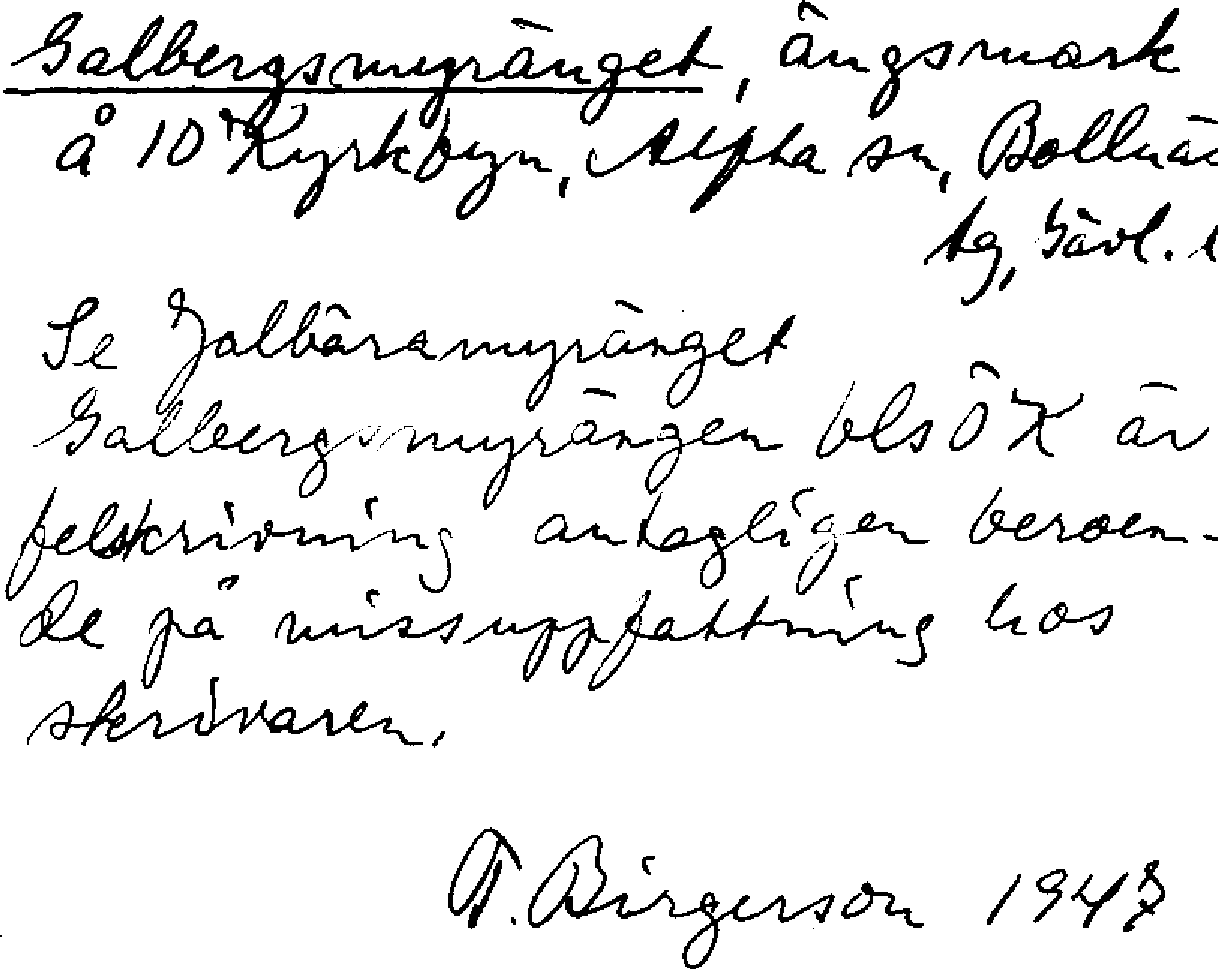 Galbergsmyränget, ängsmark
å 10 Kyrkbyn, Alfta sn, Bollnä
tg, Gävl. l
Se Jalbäramyränget
Galbergsmyrängen bls ÖK är
felskrivning antagligen beroen-
de på missuppfattning hos
skrivaren.
T. Birgerson 1947